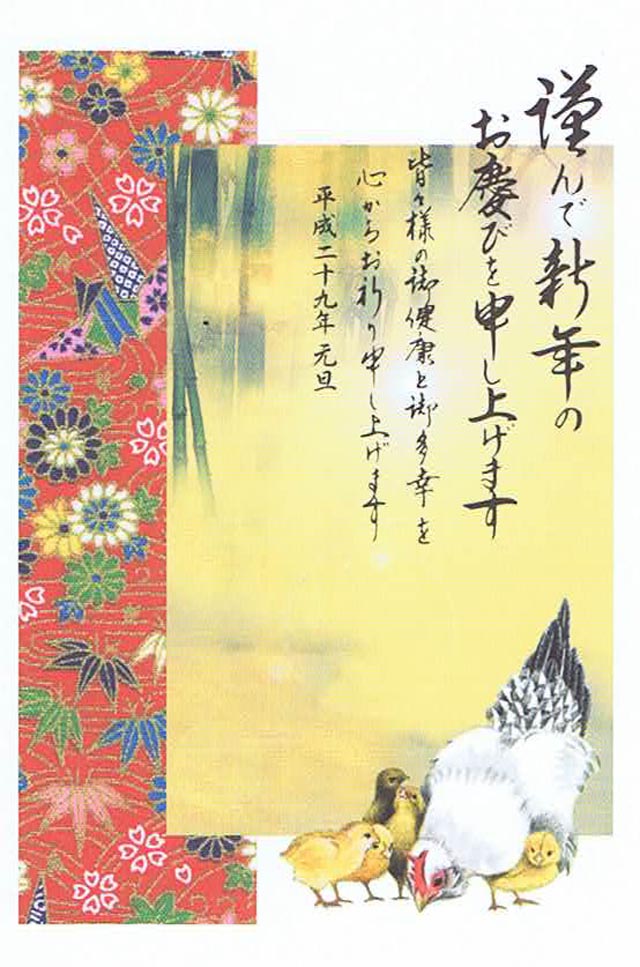 謹んで新年の
お慶びを申し上げます
皆々様の御健康と御多幸を
心からお祈り申し上げます
平成二十九年 元旦